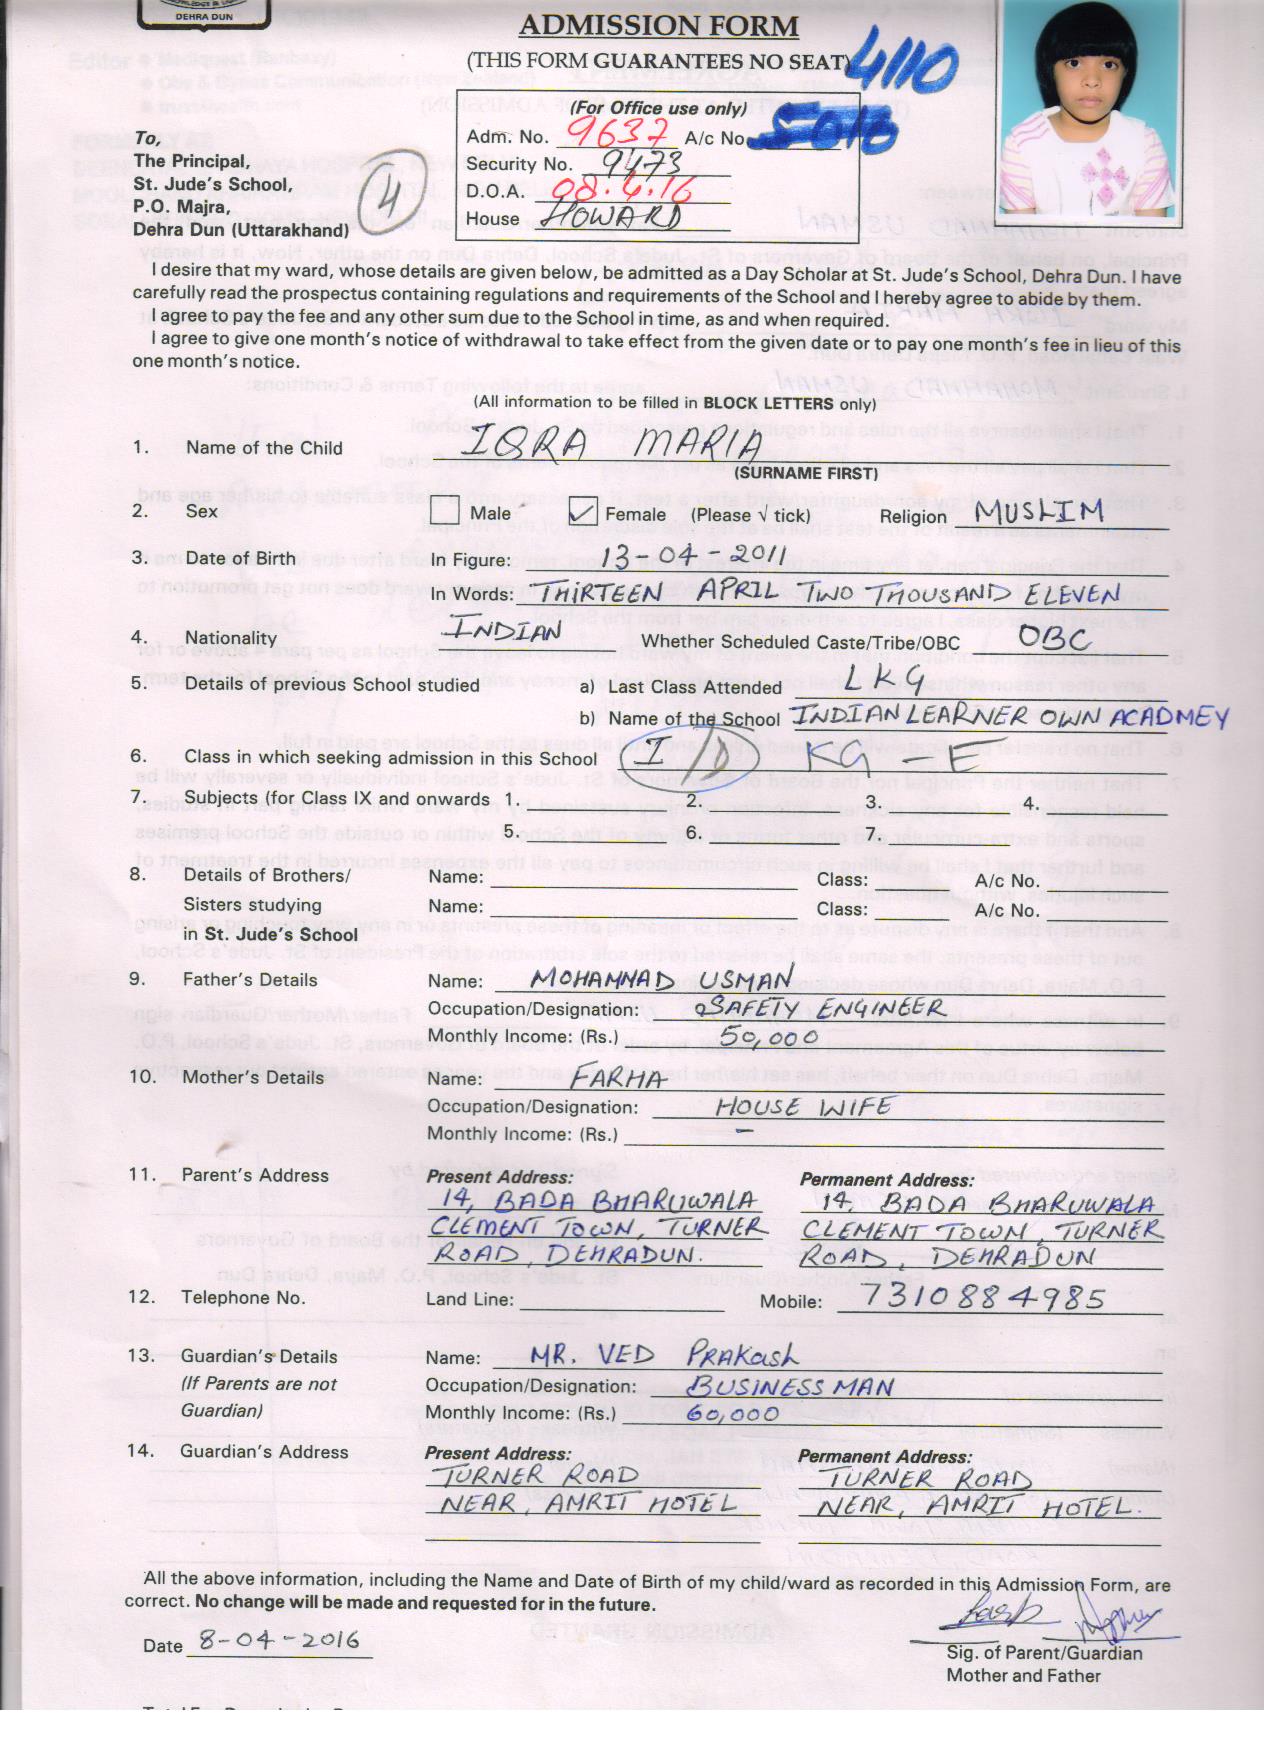 DEHRA DUN
ADMISSION FORM
(THIS FORM GUARANTEES NO SEAT)
4110
(For Office use only)
Adm. No. 9637 A/c No. 5016
Security No. 9473
D.O.A. 08.4.16
House HOWARD
To,
The Principal,
St. Jude's School,
P.O. Majra,
Dehra Dun (Uttarakhand)
14
I desire that my ward, whose details are given below, be admitted as a Day Scholar at St. Jude's School, Dehra Dun. I have
carefully read the prospectus containing regulations and requirements of the School and I hereby agree to abide by them.
I agree to pay the fee and any other sum due to the School in time, as and when required.
I agree to give one month's notice of withdrawal to take effect from the given date or to pay one month's fee in lieu of this
one month's notice.
(All information to be filled in BLOCK LETTERS only)
1. Name of the Child IQRA MARIA
(SURNAME FIRST)
2. Sex Male ✓ Female (Please √ tick) Religion MUSLIM
3. Date of Birth In Figure: 13-04-2011
In Words: THIRTEEN APRIL TWO THOUSAND ELEVEN
4. Nationality INDIAN Whether Scheduled Caste/Tribe/OBC OBC
5. Details of previous School studied a) Last Class Attended LKG
b) Name of the School INDIAN LEARNER OWN ACADMEY
6. Class in which seeking admission in this School I/D KG-E
7. Subjects (for Class IX and onwards 1. 2. 3. 4.
5. 6. 7.
8. Details of Brothers/ Name: Class: A/c No.
Sisters studying Name: Class: A/c No.
in St. Jude's School
9. Father's Details Name: MOHAMMAD USMAN
Occupation/Designation: SAFETY ENGINEER
Monthly Income: (Rs.) 50,000
10. Mother's Details Name: FARHA
Occupation/Designation: HOUSE WIFE
Monthly Income: (Rs.) -
11. Parent's Address Present Address: Permanent Address:
14, BADA BHARUWALA 14, BADA BHARUWALA
CLEMENT TOWN, TURNER CLEMENT TOWN, TURNER
ROAD, DEHRADUN. ROAD, DEHRADUN
12. Telephone No. Land Line: Mobile: 7310884985
13. Guardian's Details Name: MR. VED PRAKash
(If Parents are not Occupation/Designation: BUSINESS MAN
Guardian) Monthly Income: (Rs.) 60,000
14. Guardian's Address Present Address: Permanent Address:
TURNER ROAD TURNER ROAD
NEAR, AMRIT HOTEL NEAR, AMRIT HOTEL.
All the above information, including the Name and Date of Birth of my child/ward as recorded in this Admission Form, are
correct. No change will be made and requested for in the future.
Date 8-04-2016
Sig. of Parent/Guardian
Mother and Father